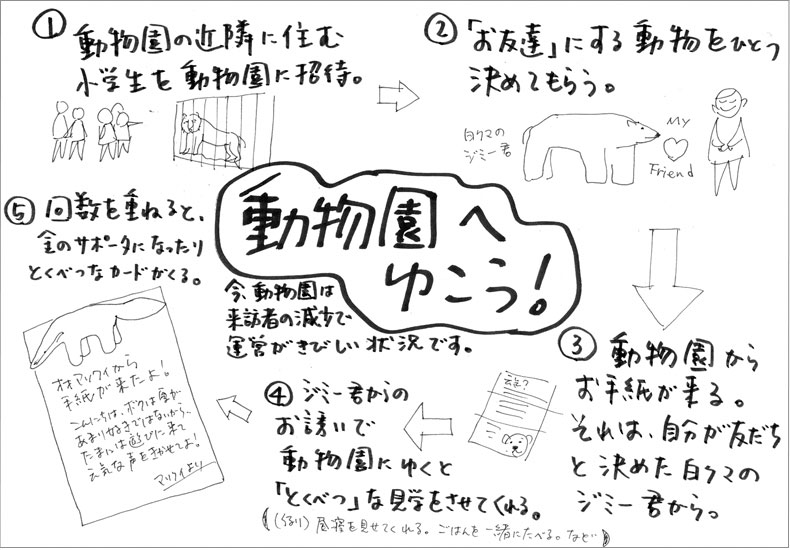 動物園へ
ゆこう!
今、動物園は
来訪者の減少で
運営がきびしい状況です。
① 動物園の近隣に住む
小学生を動物園に招待。
② 「お友達」にする動物をひとつ
決めてもらう。
白クマの
ジミー君
My
Friend
③ 動物園から
お手紙が来る。
それは、自分が友だち
と決めた白クマの
ジミー君から。
④ ジミー君からの
お誘いで
動物園にゆくと
「とくべつ」な見学をさせてくれる。
昼寝を見せてくれる。ごはんを一緒にたべる。など
⑤ 回数を重ねると、
金のサポータになったり
とくべつなカードがくる。
オオアリクイから
手紙が来たよ!
こんにちは、ボクは
あまり好きではないから、
たまには遊びに来て
元気な声をきかせてよ!
アリクイより